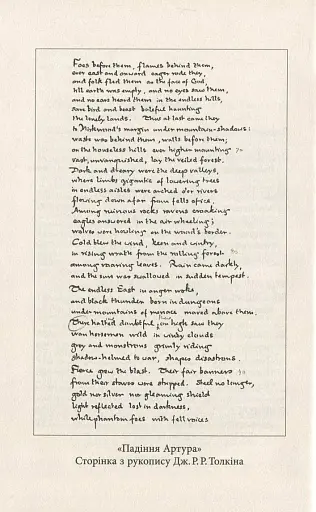 Foes before them, flames behind them,
ever east and onward eager rode they,
and folk fled them as the face of God,
till earth was empty, and no eyes saw them,
and no ears heard them in the endless hills,
save bird and beast baleful haunting
the lonely lands. Thus at last came they
to Mirkwood's margin under mountain-shadows:
waste was behind them, walls before them;
on the houseless hills ever higher mounting 70
vast, unvanquished, lay the veiled forest.
Dark and dreary were the deep valleys,
where limbs gigantic of lowering trees
in endless aisles were arched o'er rivers
flowing down afar from fells of ice.
Among ruinous rocks ravens croaking
eagles answered in the air wheeling;
wolves were howling on the wood's border.
Cold blew the wind, keen and wintry,
in rising wrath from the rolling forest 80
among roaring leaves. Rain came darkly,
and the sun was swallowed in sudden tempest.
The endless East in anger woke,
and black thunder born in dungeons
under mountains of menace moved above them.
Then halted doubtful, on high saw they
wan horsemen wild in windy clouds
grey and monstrous grimly riding
shadow-helmed to war, shapes disastrous.
Fierce grew the blast. Their fair banners 90
from their staves were stripped. Steel no longer,
gold nor silver nor gleaming shield
light reflected lost in darkness,
while phantom foes with fell voices
«Падіння Артура»
Сторінка з рукопису Дж. Р. Р. Толкіна